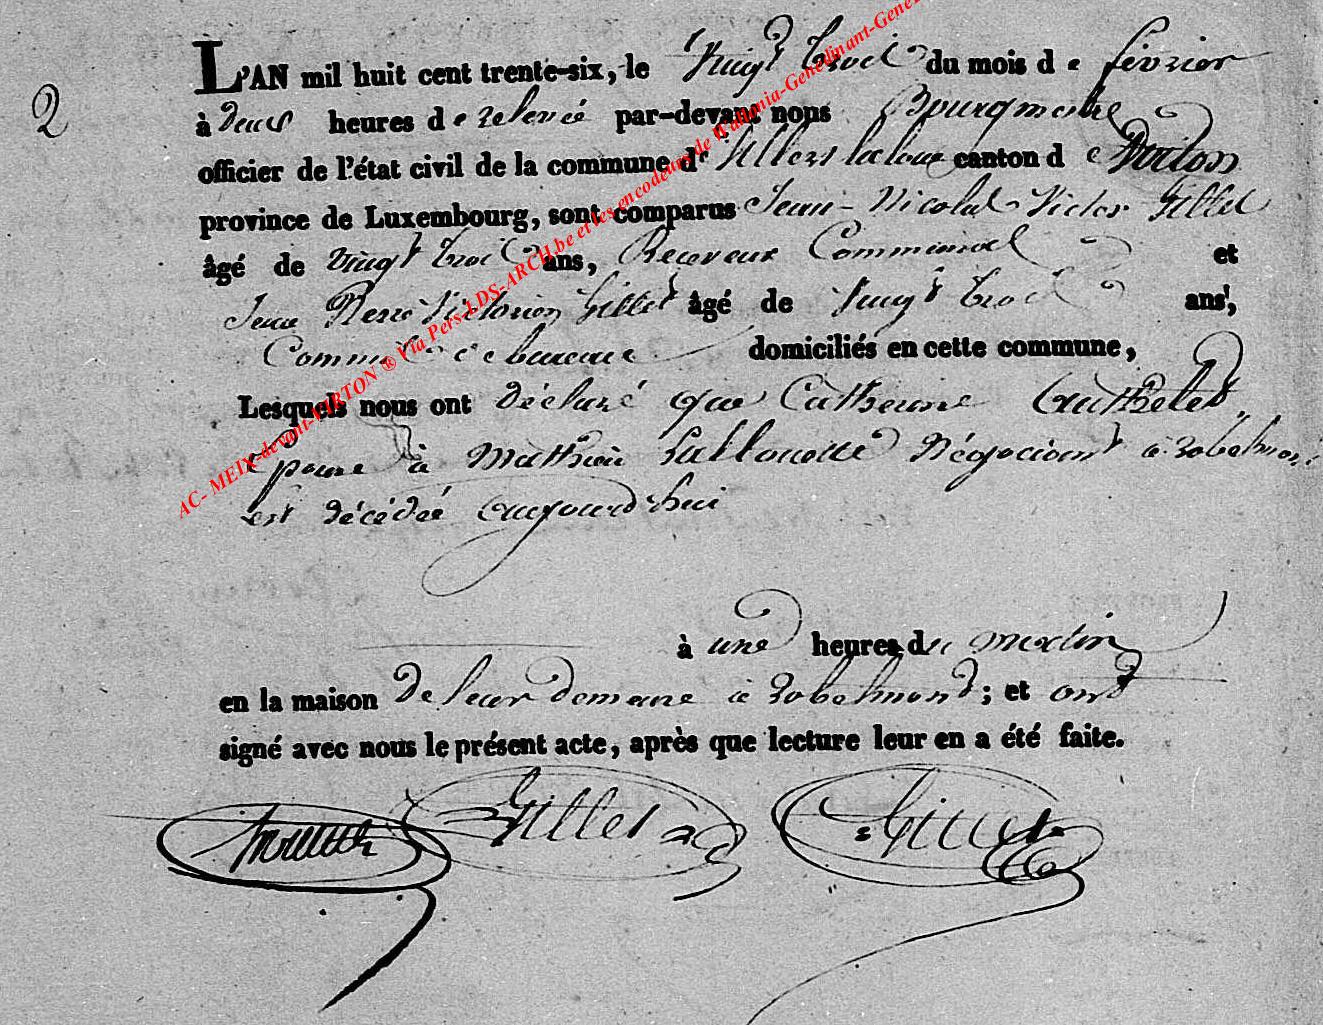 2
L'AN mil huit cent trente-six, le Vingt trois du mois de février
à deux heures de relevée par-devant nous Bourgmestre
officier de l'état civil de la commune de Villers la loue canton de Virton
province de Luxembourg, sont comparus Jean-Nicolas Victor Gillet
âgé de vingt trois ans, Receveur Communal et
Jean Pierre Victorien Gillet âgé de Vingt trois ans,
Commis de bureau domiciliés en cette commune,
Lesquels nous ont déclaré que Catherine Authelet
Epouse à Mathieu Lallouette Négociant à robelmont
est décédée aujourd'hui
à une heures du matin
en la maison de leur demeure à robelmont; et ont
signé avec nous le présent acte, après que lecture leur en a été faite.
Gillet Gillet
AC- MEIX-devant-VIRTON ® Via Pers-LDS-ARCH.be et les encodeurs de Wallonia-Genedinant-Gene